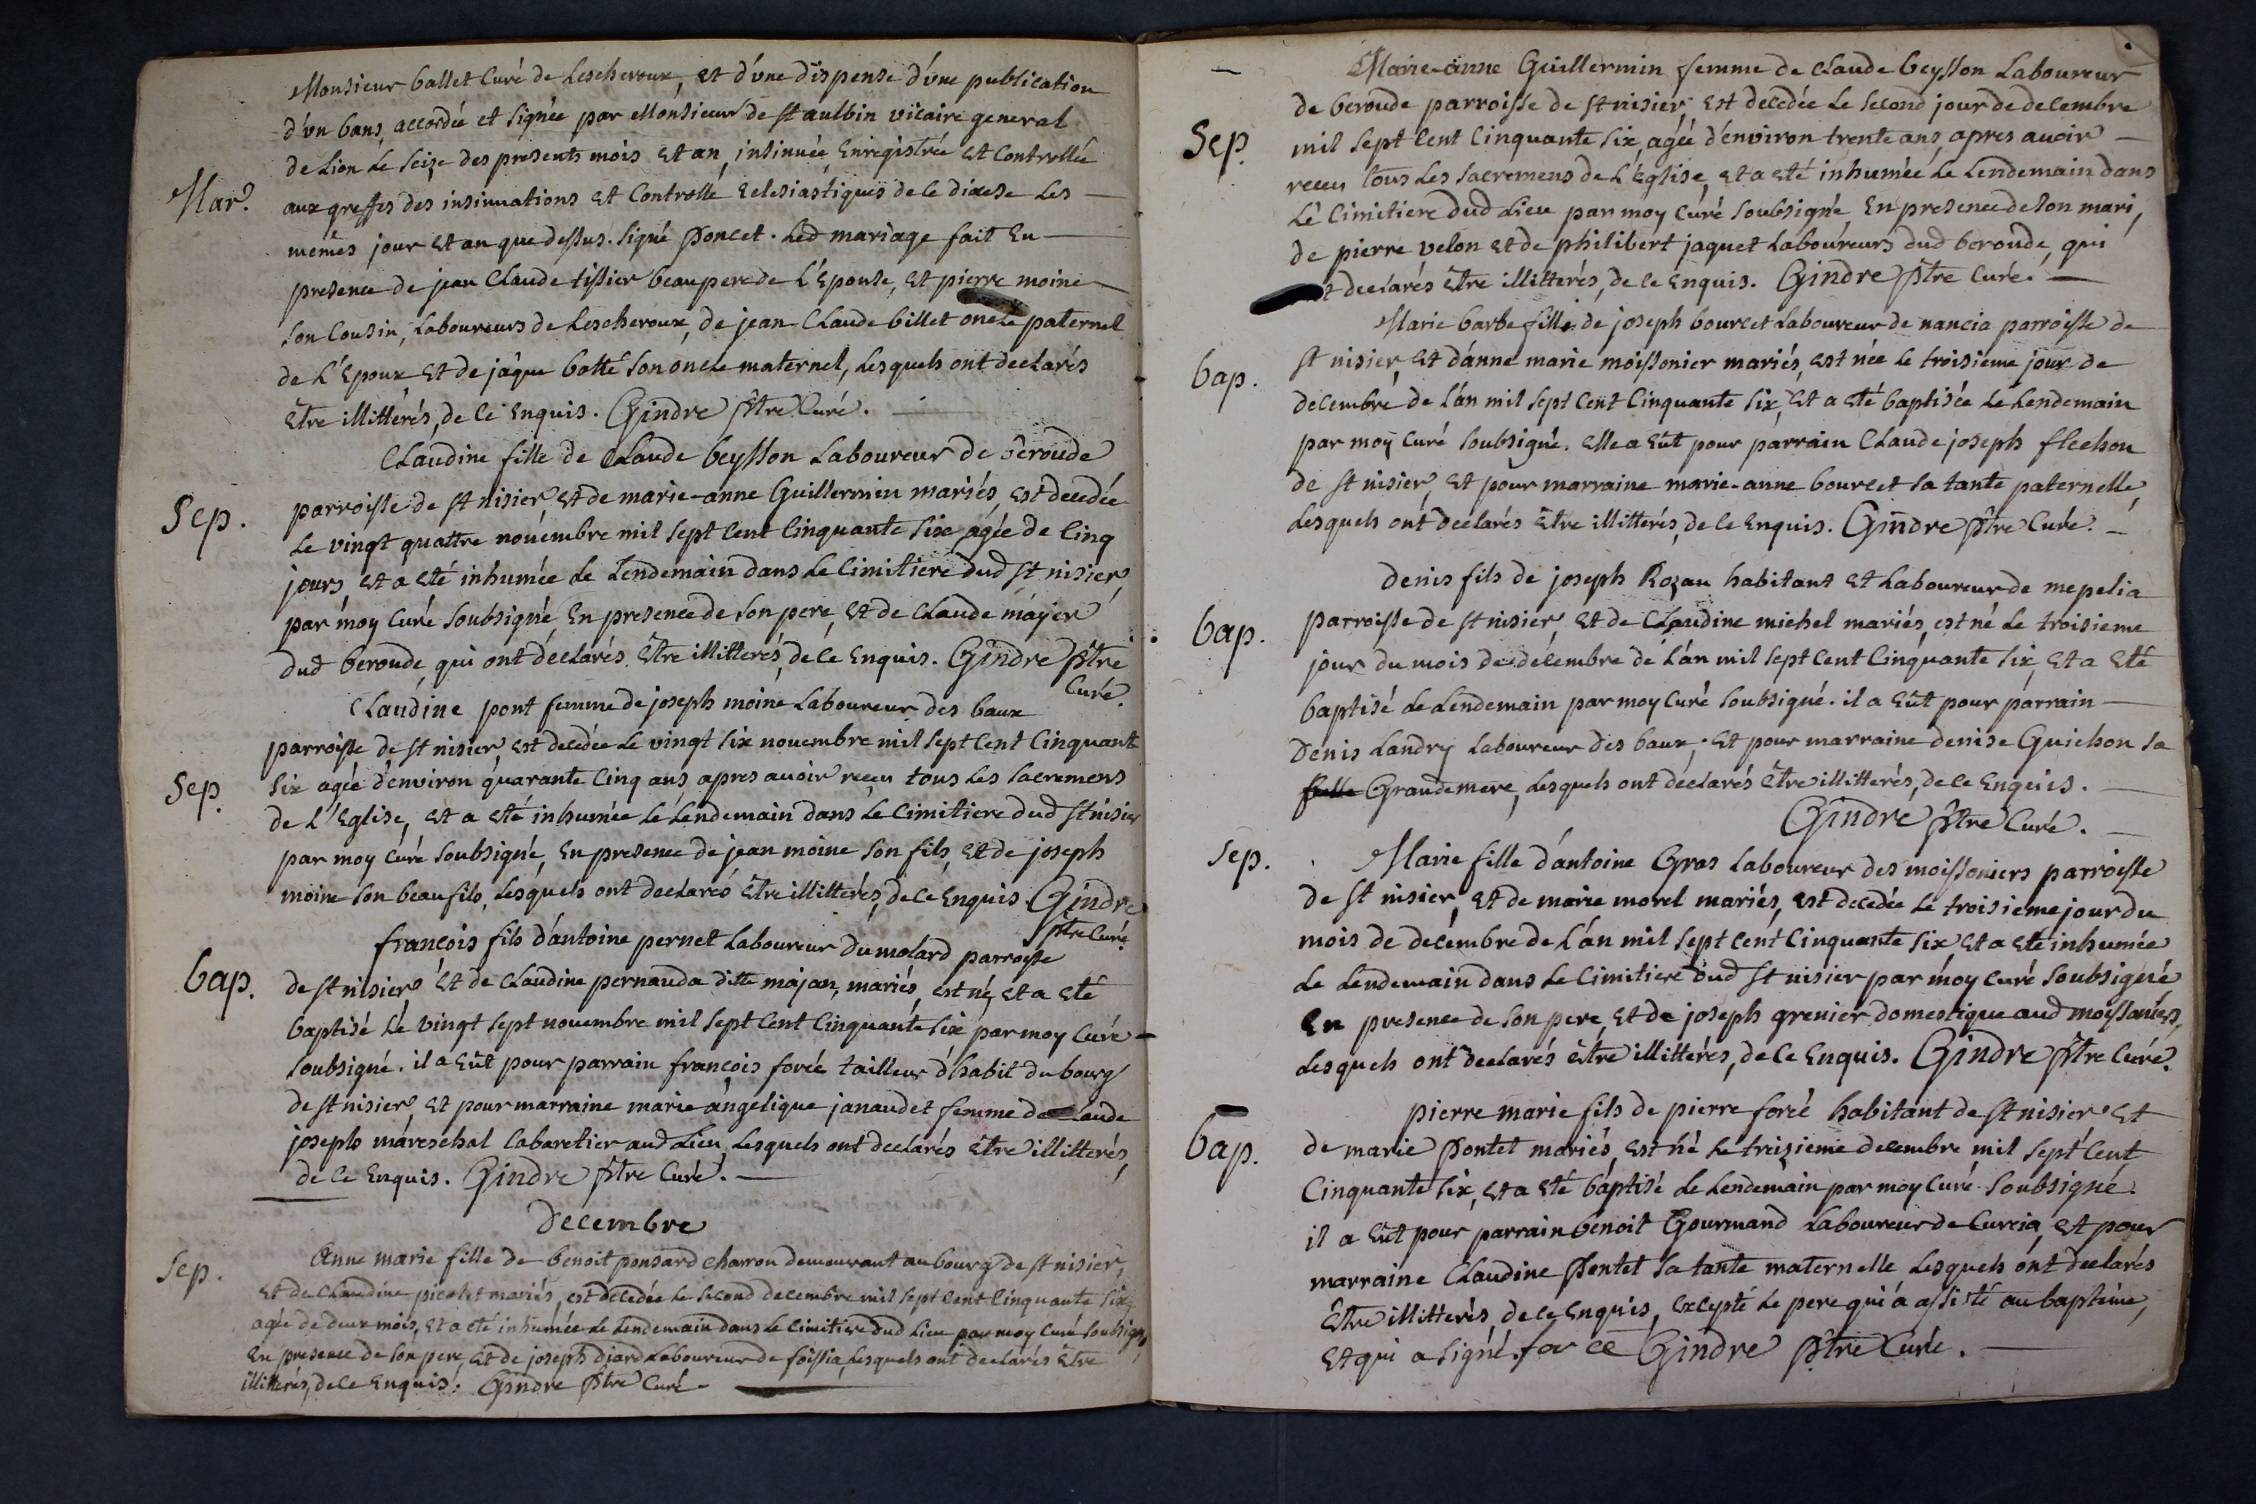 Monsieur ballet Curé de Lescheroux, et d'vne dispense d'vne publication
d'vn bans, accordée et signée par Monsieur de st aulbin vicaire general
de Lion Le seise des presents mois et an, insinuée Enregistrée et Controllée
Mar.
aux greffes des insinuations et Controlle Eclesiastiques de ce dixese Les
memes jour et an que dessus. signé Poncet. Led mariage fait En
presence de jean Claude tissier beaupere de L'Epouse, et pierre moine
son Cousin, Laboureurs de Lescheroux, de jean Claude billet oncle paternel
de L'Epoux et de jâque botte son oncle maternel, Lesquels ont declarés
Etre illitterés, de ce Enquis. Gindre Ptre Curé.
Claudine fille de Claude beysson Laboureur de beroude
Sep.
parroisse de st nisier, et de marie-anne Guillermin mariés, est decedée
Le vingt quattre nouembre mil sept cent Cinquante six agée de Cinq
jours, et a Eté inhumée Le Lendemain dans Le Cimitiere dud st nisier,
par moy Curé soubsigné En presence de son pere, et de Claude mayer
dud beroude, qui ont déclarés Etre illitterés, de ce Enquis. Gindre Ptre
Curé.
Claudine pont femme de joseph moine Laboureur des baux
parroisse de st nisier, est decedée Le vingt six nouembre mil sept cent Cinquant
Sep.
six agée d'environ quarante Cinq ans, apres auoir reçeu tous Les sacremens
de L'Eglise, et a Eté inhumée Le Lendemain dans Le Cimitiere dud st nisier
par moy Curé soubsigné, En presence de jean moine son fils, et de joseph
moine son beaufils, Lesquels ont declarés Etre illitterés, de ce Enquis Gindre
Ptre Curé.
françois fils d'antoine pernet Laboureur du molard parroisse
bap.
de st nisier et de Claudine pernauda ditte majan, mariés, est né, et a Eté
baptisé Le vingt sept nouembre mil sept cent Cinquante six par moy Curé
soubsigné. il a Eût pour parrain françois forêt tailleur d'habit du bourg
de st nisier, et pour marraine marie angelique janaudet femme de Claude
joseph mareschal Cabaretier aud Lieu, Lesquels ont declarés Etre illitterés,
de ce Enquis. Gindre Ptre Curé.
Decembre
Sep.
Anne marie fille de benoit ponsard charron demeurant au bourg de st nisier,
et de Claudine picolet mariés, est decedée Le second decembre mil sept cent Cinquante six,
agée de deux mois, et a eté inhumée Le Lendemain dans Le Cimitiere dud Lieu par moy Curé soubsigné,
En presence de son pere, et de joseph Diard Laboureur de foissia, Lesquels ont declarés Etre
illitterés, de ce Enquis. Gindre Ptre Curé.
Marie-anne Guillermin femme de Claude beysson Laboureur
de beroude parroisse de st nisier, est decedée Le second jour de decembre
Sep.
mil sept cent Cinquante six, agée d'environ trente ans, apres auoir
receu tous Les sacremens de L'Eglise, et a eté inhumée Le Lendemain dans
Le Cimitiere dud Lieu par moy Curé soubsigné, En presence de son mari,
de pierre velon et de philibert jaquet Laboureurs dud beroude, qui
ont declarés Etre illitterés, de ce Enquis. Gindre Ptre Curé.
Marie barbe fille de joseph bourcet Laboureur de nancia parroisse de
bap.
st nisier, et d'anne marie moissonier mariés, est née Le troisieme jour de
decembre de L'an mil sept cent Cinquante six, et a eté baptisée Le Lendemain
par moy Curé soubsigné. Elle a Eût pour parrain Claude joseph flechon
de st nisier, et pour marraine marie-anne bourcet sa tante paternelle,
Lesquels ont declarés Etre illitterés, de ce Enquis. Gindre Ptre Curé.
Denis fils de joseph Rozan habitant et Laboureur de mepelia
bap.
parroisse de st nisier, et de Claudine michel mariés, est né Le troisieme
jour du mois de decembre de L'an mil sept cent Cinquante six, et a Eté
baptisé Le Lendemain par moy Curé soubsigné. il a Eût pour parrain
Denis Landry Laboureur des baux, et pour marraine denise Guichon sa
Grandemere, Lesquels ont déclarés Etre illitterés, de ce Enquis.
Gindre Ptre Curé.
Sep.
Marie fille d'antoine Gras Laboureur des moissoniers parroisse
de st nisier, et de marie morel mariés, est decedée Le troisieme jour du
mois de decembre de L'an mil sept cent Cinquante six et a eté inhumée
Le Lendemain dans Le Cimitiere dud st nisier par moy Curé soubsigné
En presence de son pere, et de joseph grenier domestique aud moissoniers,
Lesquels ont declarés Etre illitterés, de ce Enquis. Gindre Ptre Curé.
pierre marie fils de pierre forêt habitant de st nisier et
bap.
de marie Pontet mariés, est né Le treizieme decembre mil sept cent
Cinquante six, et a eté baptisé Le Lendemain par moy Curé soubsigné.
il a Eût pour parrain benoit Gourmand Laboureur de Curcia, et pour
marraine Claudine Pontet sa tante maternelle Lesquels ont declarés
Etre illitterés, de ce Enquis, Excepté Le pere qui a assisté au bapteme,
et qui a signé. for ce Gindre Ptre Curé.